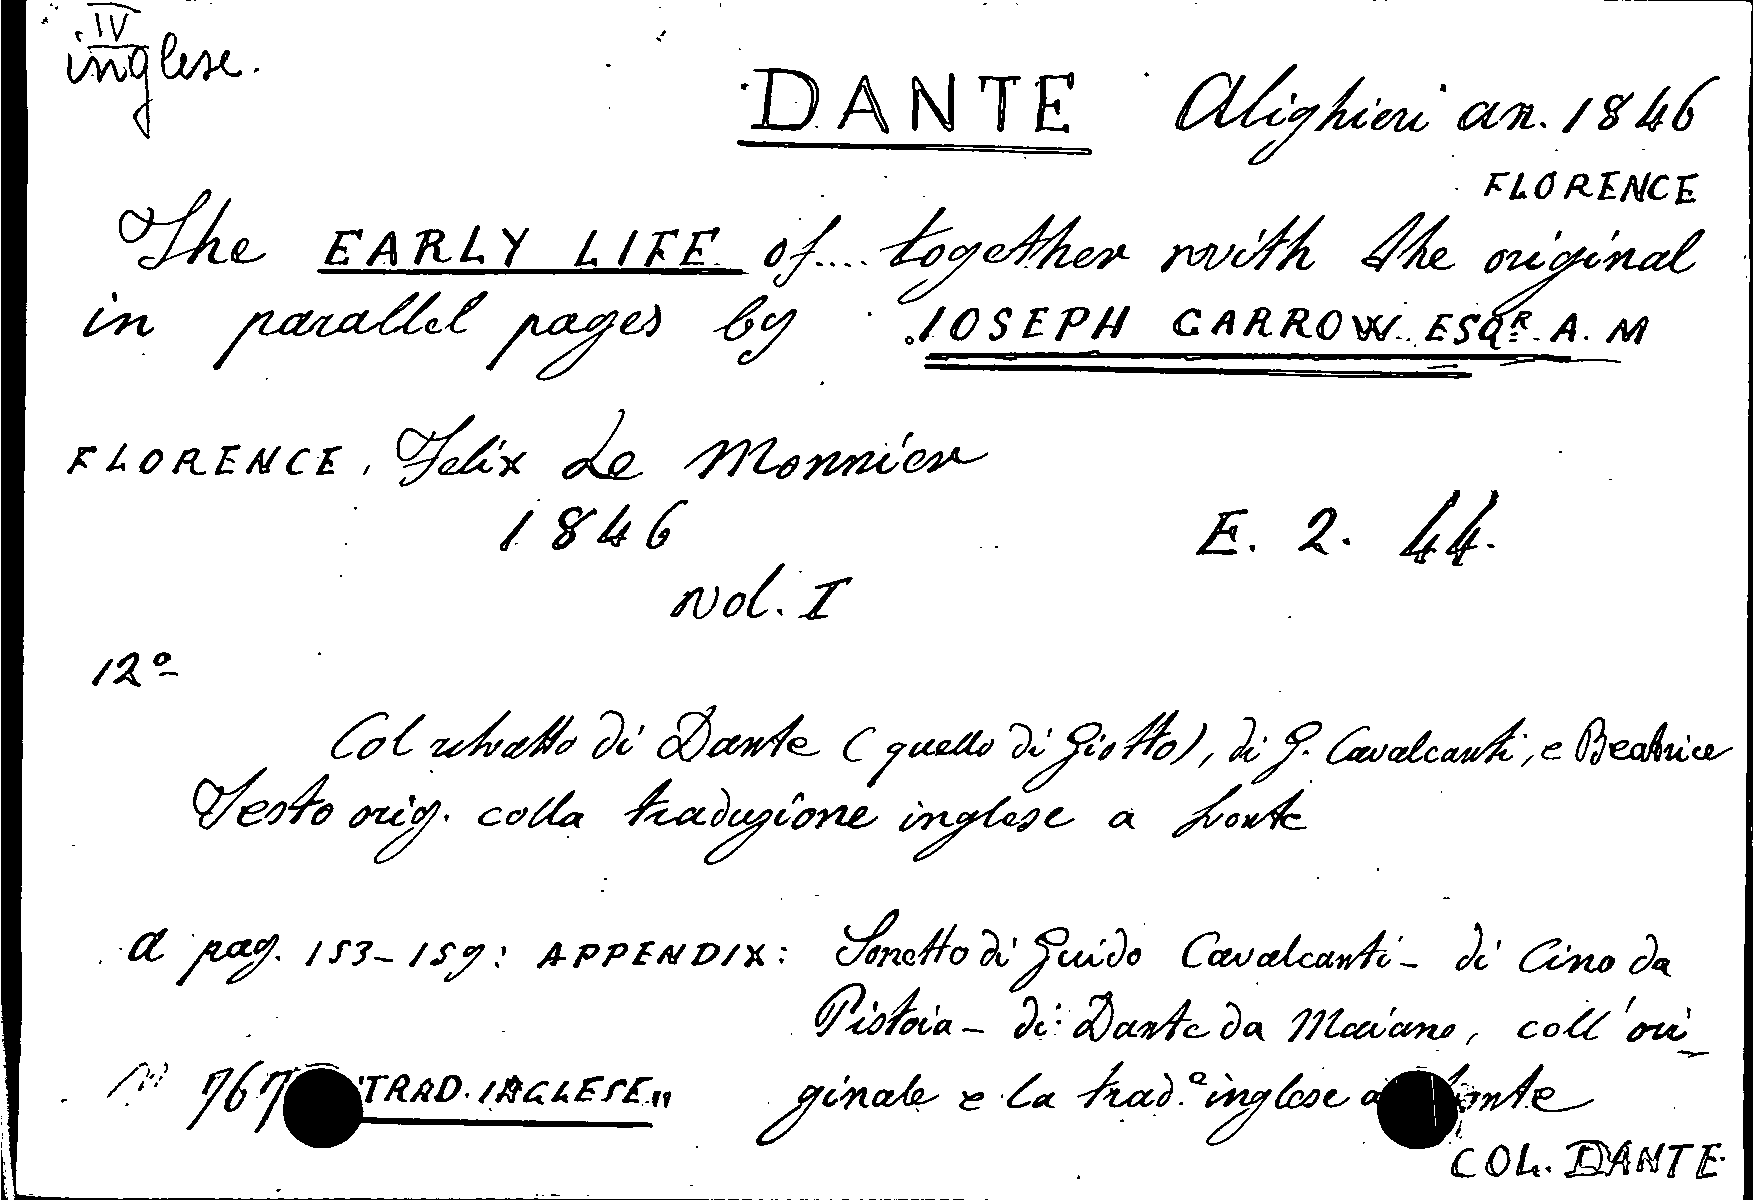 IV
inglese.
DANTE Alighieri an. 1846
FLORENCE
The EARLY LIFE of.... together with the original
in parallel pages by IOSEPH GARROW ESQR. A. M
FLORENCE, Felix Le Monnier
1846
E. 2. 44.
vol. I
12º
Col ritratto di Dante (quello di Giotto), di G. Cavalcanti, e Beatrice
Testo orig. colla traduzione inglese a fronte
a pag. 153-159: APPENDIX: Sonetto di Guido Cavalcanti - di Cino da
Pistoia - di Dante da Maiano, coll'ori-
767 "TRAD. INGLESE" ginale e la trad.e inglese a fronte
COL. DANTE